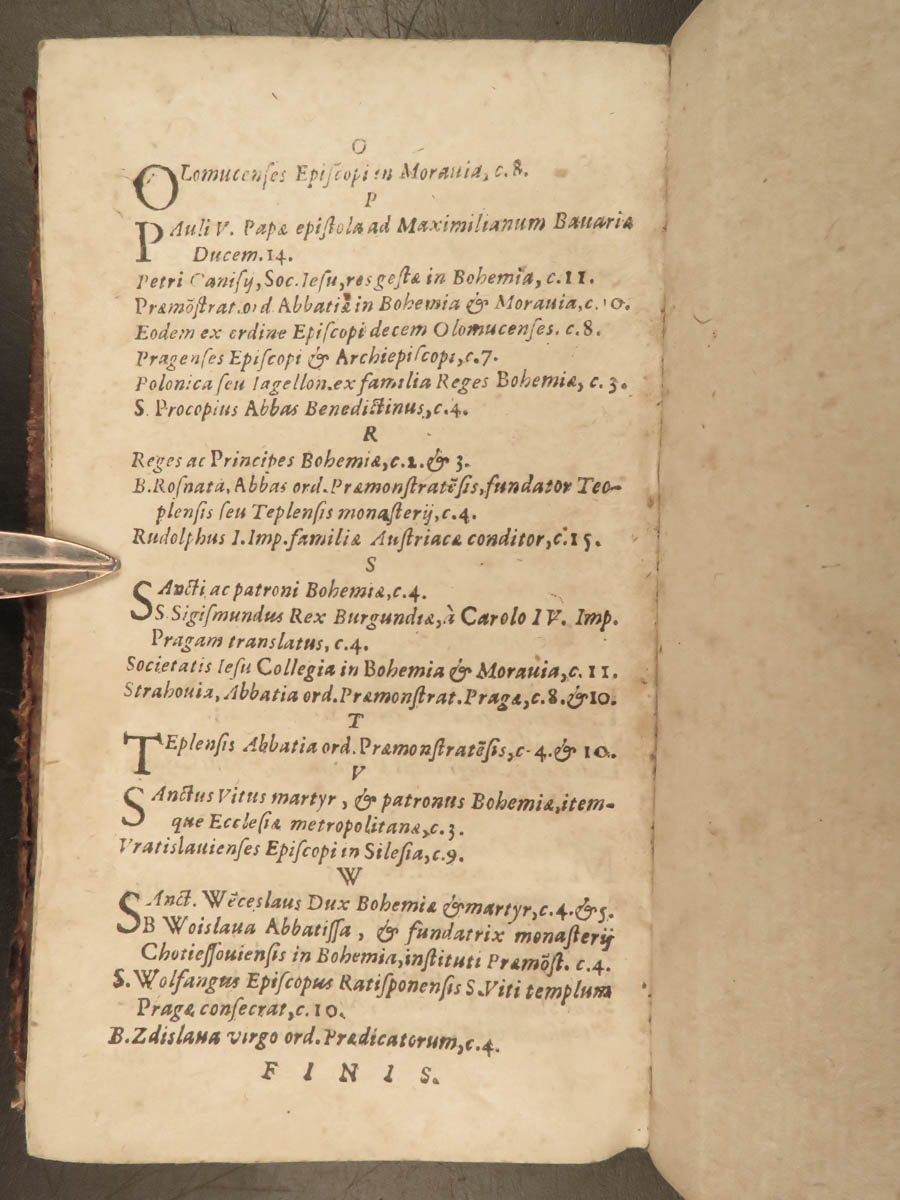 O
OLomucenſes Epiſcopi in Morauia, c. 8.
P
PAuli V. Papæ epiſtola ad Maximilianum Bauariæ
Ducem. 14.
Petri Caniſij, Soc. Ieſu, res geſtæ in Bohemia, c. 11.
Præmõſtrat. ord. Abbatiæ in Bohemia & Morauia, c. 10.
Eodem ex ordine Epiſcopi decem Olomucenſes. c. 8.
Pragenſes Epiſcopi & Archiepiſcopi, c. 7.
Polonica ſeu Iagellon. ex familia Reges Bohemiæ, c. 3.
S. Procopius Abbas Benedictinus, c. 4.
R
Reges ac Principes Bohemiæ, c. 2. & 3.
B. Roſnata, Abbas ord. Præmonſtratẽſis, fundator Teo-
plenſis ſeu Teplenſis monaſterij, c. 4.
Rudolphus I. Imp. familiæ Auſtriacæ conditor, c. 15.
S
SAncti ac patroni Bohemiæ, c. 4.
S Sigiſmundus Rex Burgundiæ, à Carolo IV. Imp.
Pragam translatus, c. 4.
Societatis Ieſu Collegia in Bohemia & Morauia, c. 11.
Strahouia, Abbatia ord. Præmonſtrat. Pragæ, c. 8. & 10.
T
TEplenſis Abbatia ord. Præmonſtratẽſis, c. 4. & 10.
V
SAnctus Vitus martyr, & patronus Bohemiæ, item-
que Eccleſiæ metropolitanæ, c. 3.
Vratislauienſes Epiſcopi in Sileſia, c. 9.
W
SAnct. Wẽceslaus Dux Bohemiæ & martyr, c. 4. & 5.
B Woislaua Abbatiſſa, & fundatrix monaſterij
Chotieſſouienſis in Bohemia, inſtituti Præmõſt. c. 4.
S. Wolfangus Epiſcopus Ratiſponenſis S. Viti templum
Pragæ conſecrat, c. 10.
B. Zdislaua virgo ord. Prædicatorum, c. 4.
F I N I S.